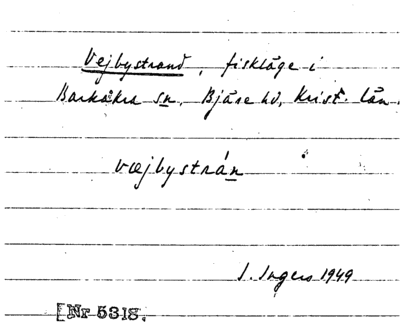 Vejbystrand, fiskläge i
Barkåkra sn. Bjäre hd, Krist. län.
væjbystrán
I. Ingers 1949
[Nr 5318.